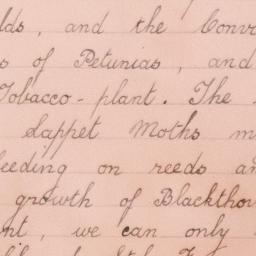 lds, and the Conv
s of Petunias, and
Tobacco-plant. The
Lappet Moths m
eeding on reeds an
growth of Blacktho
nt, we can only